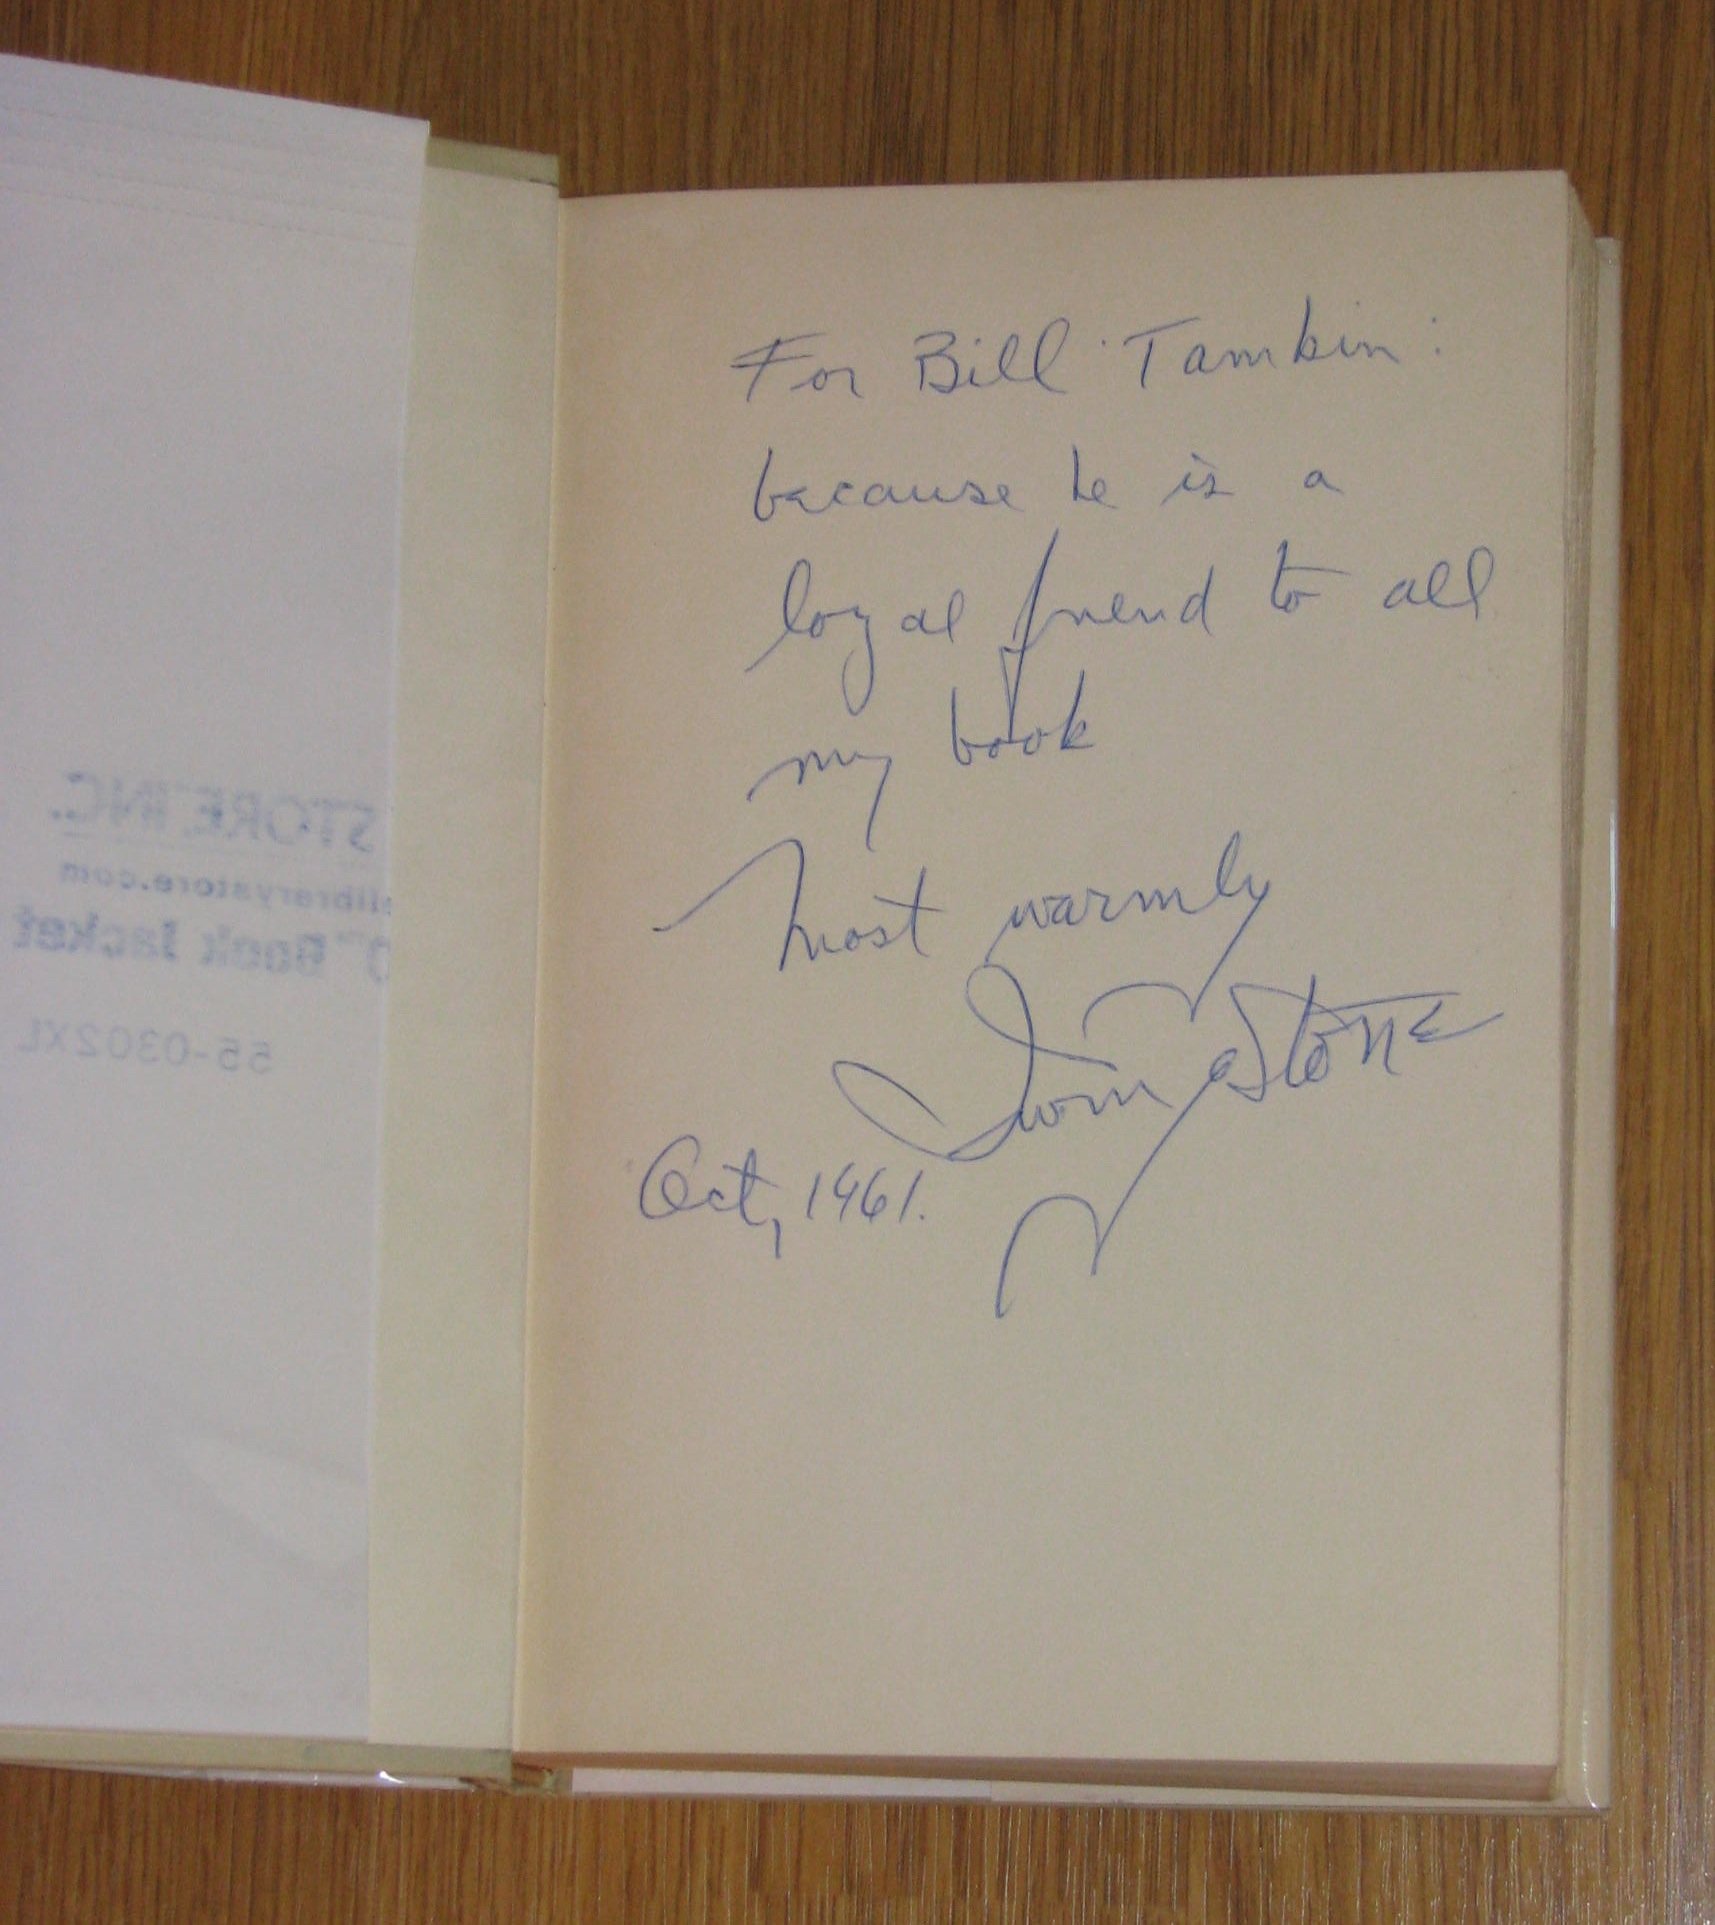 STORE INC.
librarystore.com
0" Book Jacket
55-0302XL
For Bill Tamkin:
because he is a
loyal friend to all
my book
Most warmly
Irving Stone
Oct, 1961.